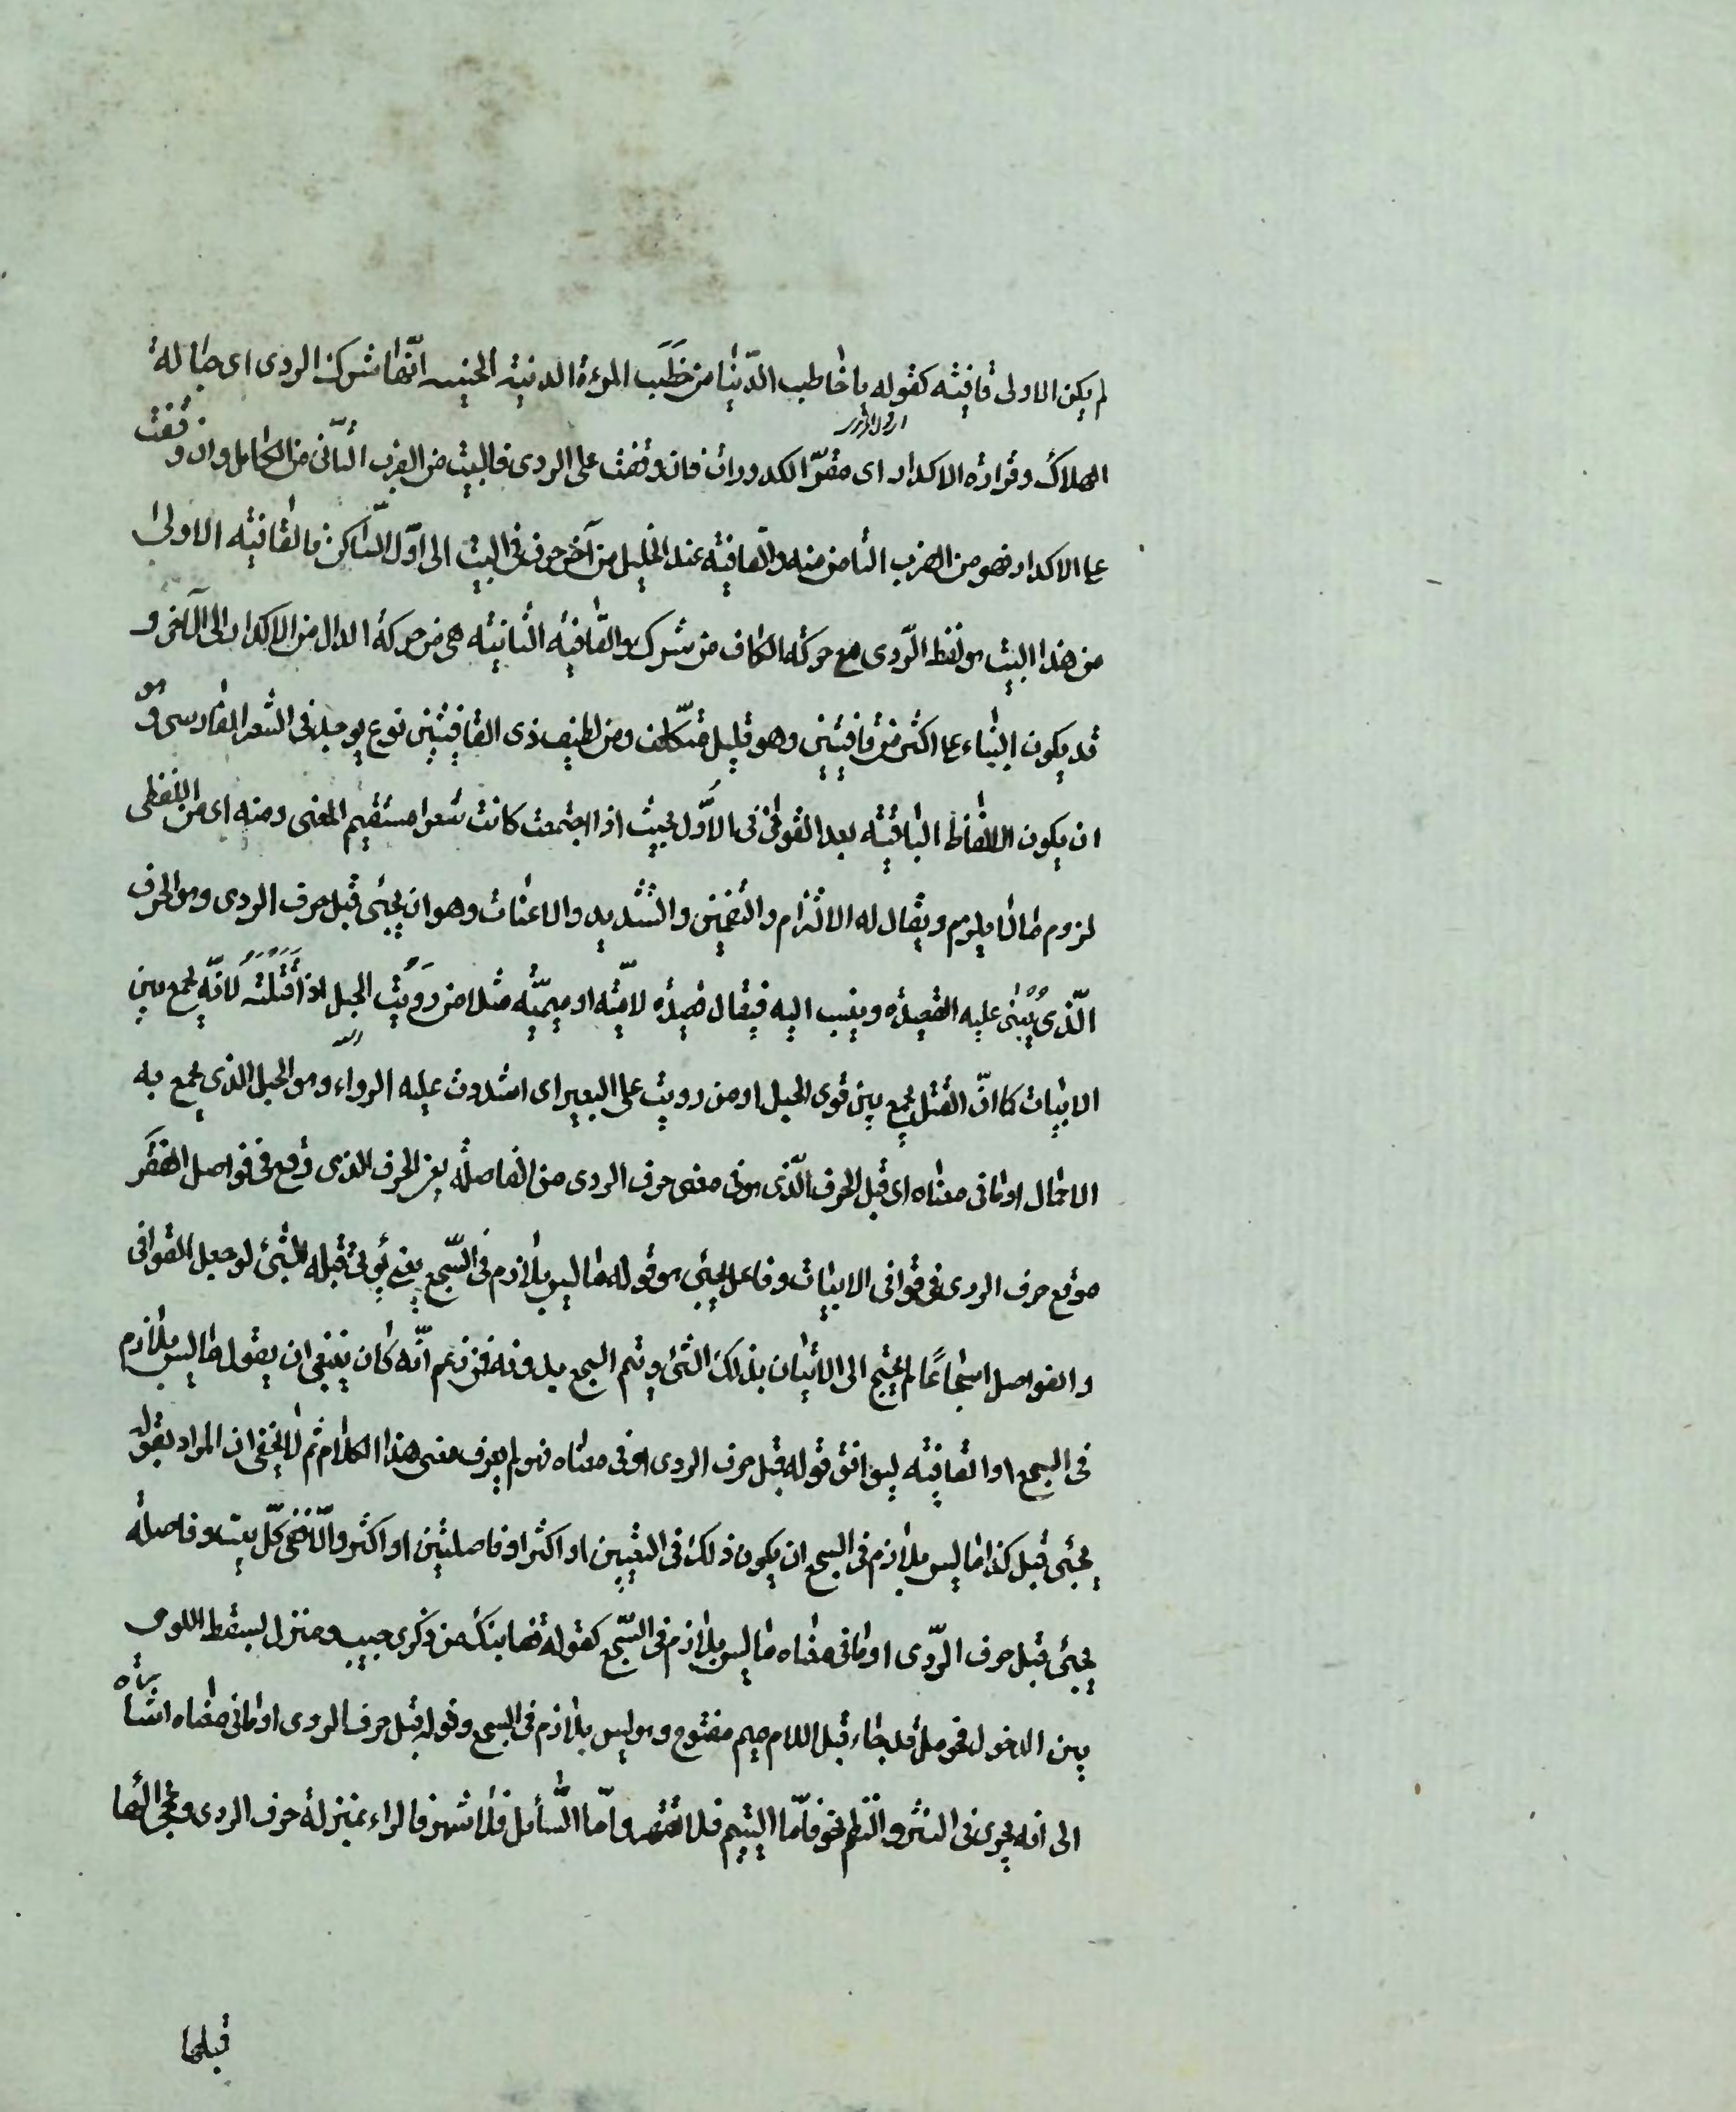 لم يكن الاولى قافيته كقوله يا خاطب الدّنيا من خَطَبَ المرءة الدنيّة الخسيسه انّها شرك الردى اى حبالة
الهلاك وقرارة الاكدار اى مقرّ الكدورات فان وقفت على الردى فالبيت من الضرب الثّانى من الكامل وان وقفت
على الاكدار فهو من الضرب الثامن منه والقافية عند الخليل من آخر حرف فى البيت الى اوّل السّاكن فالقافية الاولى
من هذا البيت هو لفظ الرّدى مع حركة الكاف من شرك والقافية الثانية هى من حركة الدال من الاكدار الى الآخر و
قد يكون البناء على اكثر من قافيتين وهو قليل متكلّف ومن لطيف ذى القافيتين نوع يوجد فى الشعر الفارسى وهو
ان يكون الالفاظ الباقية بعد القوافى الاُوَل بحيث اذا اجتمعت كانت شعرا مستقيم المعنى ومنه اى من اللفظى
لزوم ما لا يلزم ويقال له الالتزام والتضمين والتشديد والاعنات وهو ان يجئ قبل حرف الروى وهو الحرف
الّذى يُبْنى عليه القصيدة وينسب اليه فيقال قصيدة لاميّة او ميميّة مثلا من رَوَيْتُ الحبل اذا فَتَلْتَه لانّه يجمع بين
الابيات كما انّ الفتل يجمع بين قوى الحبل او من رويت على البعير اى شددت عليه الرواء وهو الحبل الذى يجمع به
الاحمال او ما فى معناه اى قبل الحرف الّذى هو فى معنى حرف الروى من الفاصلة يعنى الحرف الذى وقع فى فواصل الفقَر
موقع حرف الروى فى قوافى الابيات وفاعل يجئ هو قوله ما ليس بلازم فى السّجع يعنى يُؤتى قبله بشئ لو جعل القوافى
والفواصل اسجاعًا لم يحتج الى الاتيان بذلك الشئ ويتم السجع بدونه فمن زعم انّه كان ينبغى ان يقول ما ليس بلازم
فى السجع او القافية ليوافق قوله قبل حرف الروى او فى معناه فهو لم يعرف معنى هذا الكلام ثم لا يخفى ان المراد بقوله
يجئ قبل كذا ما ليس بلازم فى السجع ان يكون ذلك فى البيتين او اكثر او فاصلتين او اكثر والّا ففى كلّ بيت وفاصلة
يجئ قبل حرف الرّوى او ما فى معناه ما ليس بلازم فى السّجع كقوله قفا نبك من ذكرى حبيب ومنزل بسقط اللوى
بين الدخول فحومل قد جاء قبل اللام ميم مفتوح وهو ليس بلازم فى السجع وقوله قبل حرف الروى او ما فى معناه اشارة
الى انه يجرى فى النثر والنظم نحو فامّا اليتيم فلا تقهر وامّا السّائل فلا تنهر فالراء بمنزلة حرف الروى ومجئ الهاء
قبلها